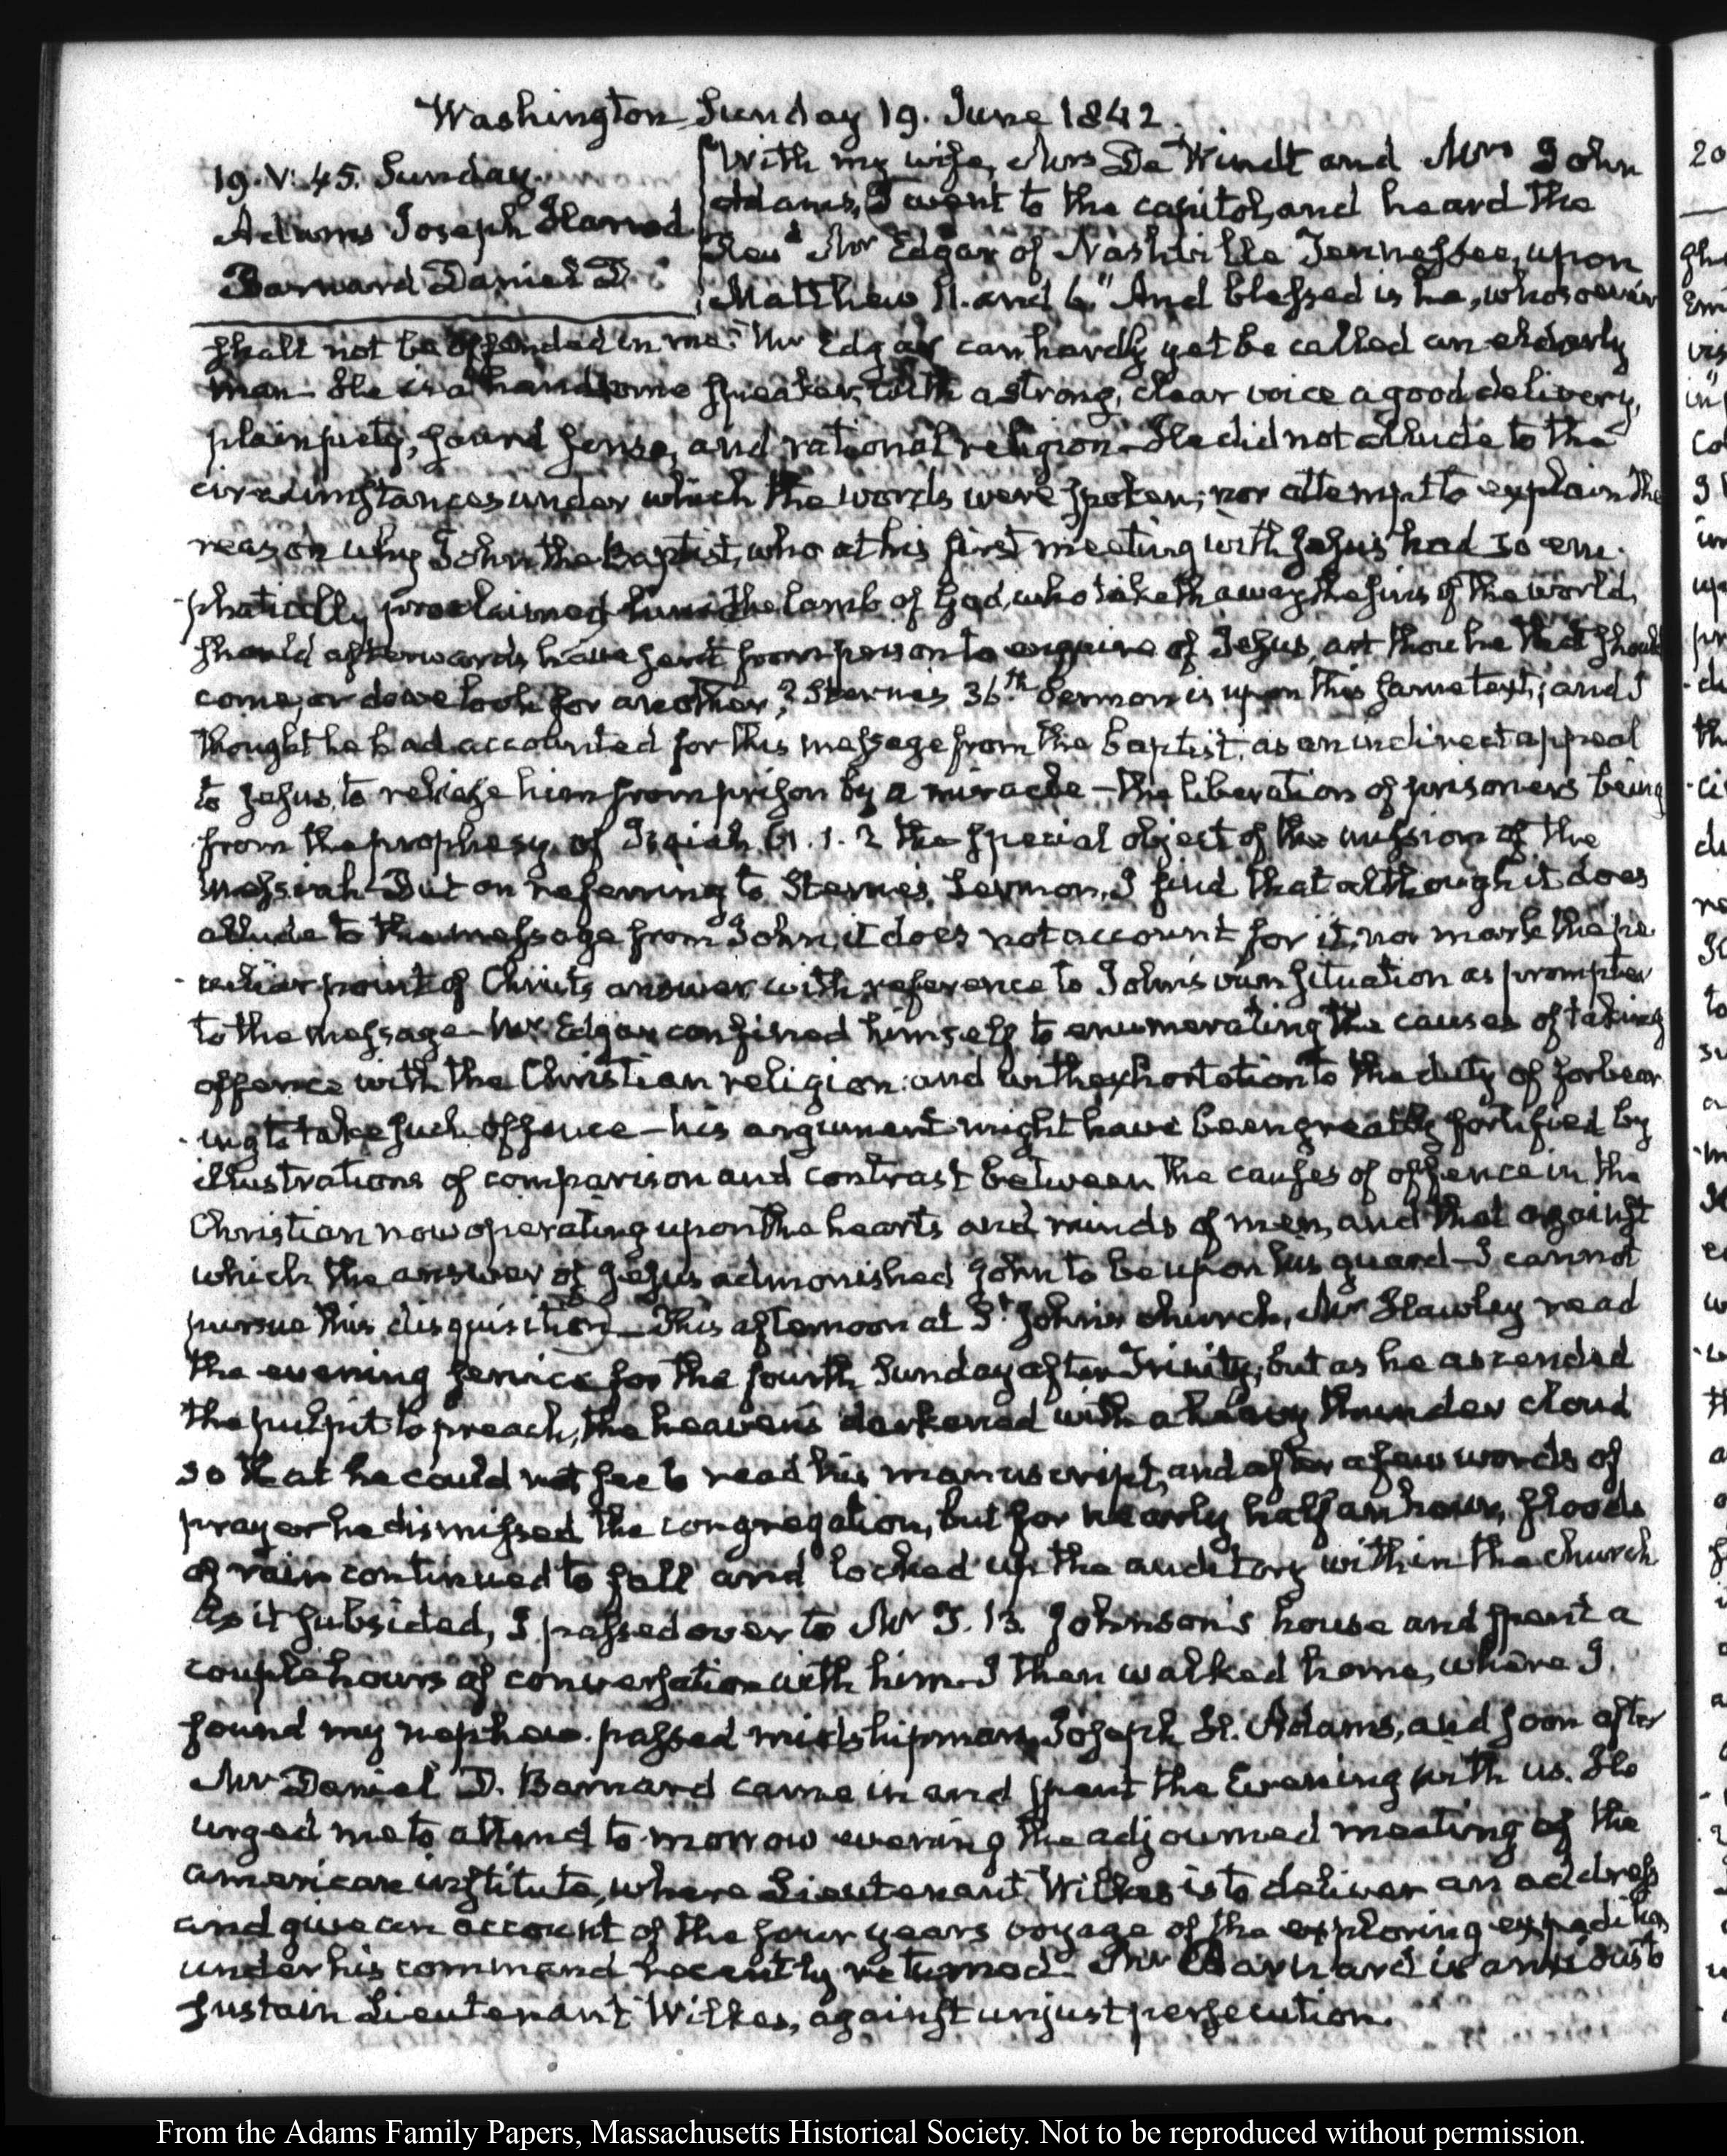 Washington Sunday 19. June 1842.
19. V. 45. Sunday.
Adams Joseph Harrod
Barnard Daniel D.
With my wife, Mrs De Windt and Mrs John
Adams, I went to the capitol, and heard the
Revd Mr Edgar of Nashville Tennessee, upon
Matthew 11. and 6. "And blessed is he, whosoever
shall not be offended in me." Mr Edgar can hardly yet be called an elderly
man—He is a handsome speaker, with a strong, clear voice a good delivery,
plain piety, sound sense, and rational religion—He did not allude to the
circumstances under which the words were spoken; nor attempt to explain the
reason why John the Baptist, who at his first meeting with Jesus had so em-
-phatically proclaimed him the lamb of God, who taketh away the sins of the world,
should afterwards have sent from prison to enquire of Jesus, art thou he that should
come, or do we look for another? Sterne's 36th Sermon is upon this same text; and I
thought he had accounted for this message from the baptist, as an indirect appeal
to Jesus, to release him from prison by a miracle—the liberation of prisoners being
from the prophesy of Isaiah 61. 1. 2 the special object of the mission of the
Messiah—But on referring to Sterne's Sermon, I find that although it does
allude to the message from John, it does not account for it, nor mark the pe-
-culiar point of Christ's answer with reference to John's own situation as prompter
to the message—Mr Edgar confined himself to enumerating the causes of taking
offence with the Christian religion: and in the exhortation to the duty of forbear-
-ing to take such offence—his argument might have been greatly fortified by
illustrations of comparison and contrast between the causes of offence in the
Christian now operating upon the hearts and minds of men, and that against
which the answer of Jesus admonished John to be upon his guard—I cannot
pursue this disquisition—This afternoon at St John's church, Mr Hawley read
the evening service for the fourth Sunday after Trinity; but as he ascended
the pulpit to preach, the heavens darkened with a heavy thunder cloud
so that he could not see to read his manuscript, and after a few words of
prayer he dismissed the congregation, but for nearly half an hour, floods
of rain continued to fall and locked up the auditory within the church
As it subsided, I passed over to Mr T. B. Johnson's house and spent a
couple hours of conversation with him—I then walked home, where I
found my nephew passed midshipman, Joseph H. Adams, and soon after
Mr Daniel D. Barnard came in and spent the Evening with us. He
urged me to attend to-morrow evening the adjourned meeting of the
american institute, where Lieutenant Wilkes is to deliver an address
and give an account of the four years voyage of the exploring expedition
under his command recently returned—Mr Barnard is anxious to
sustain Lieutenant Wilkes, against unjust persecution.
From the Adams Family Papers, Massachusetts Historical Society. Not to be reproduced without permission.